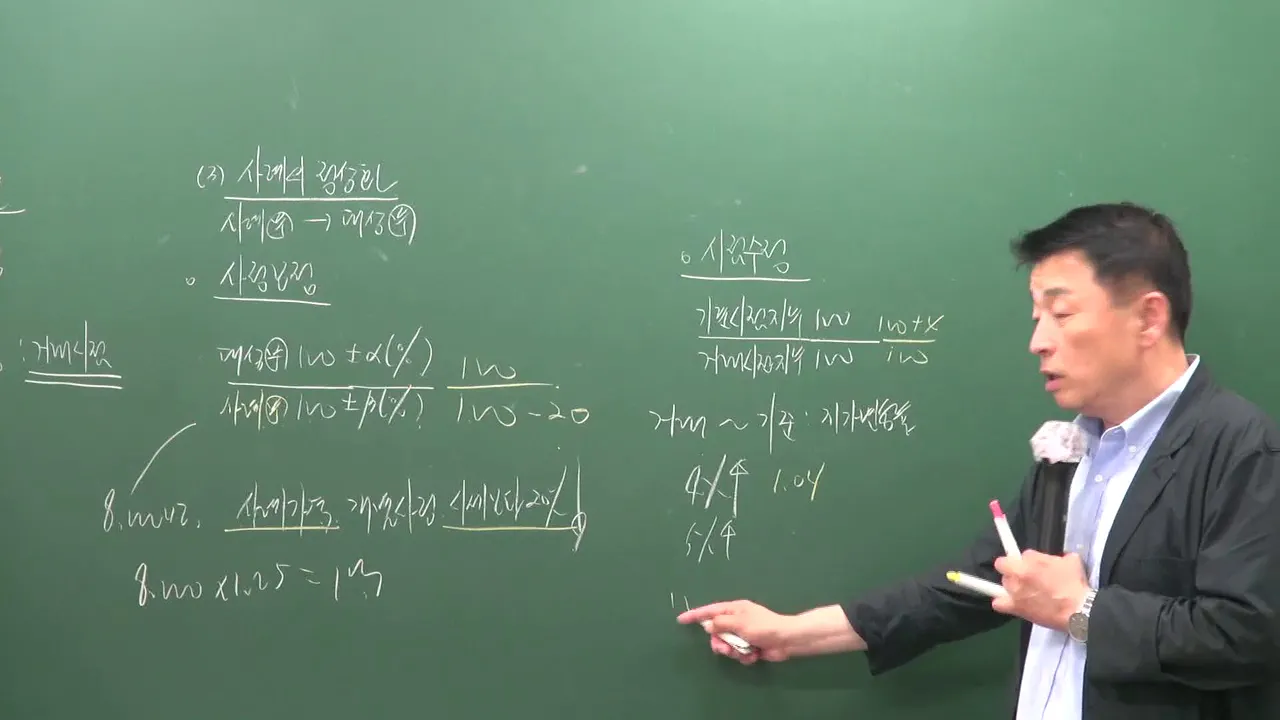 (3) 사례의 정상화
사례(부) → 대상(부)
o 사정보정
: 거래시점
대상(부) 100 ± α(%) 100
사례(부) 100 ± β(%) 100 - 20
8,000만. 사례가격 개별사정 시세보다 20% ↓
8,000 x 1.25 = 1억
o 시점수정
기준시점지수 100 100 + x
거래시점지수 100 100
거래 ~ 기준 : 지가변동률
4% ↑ 1.04
5% ↑